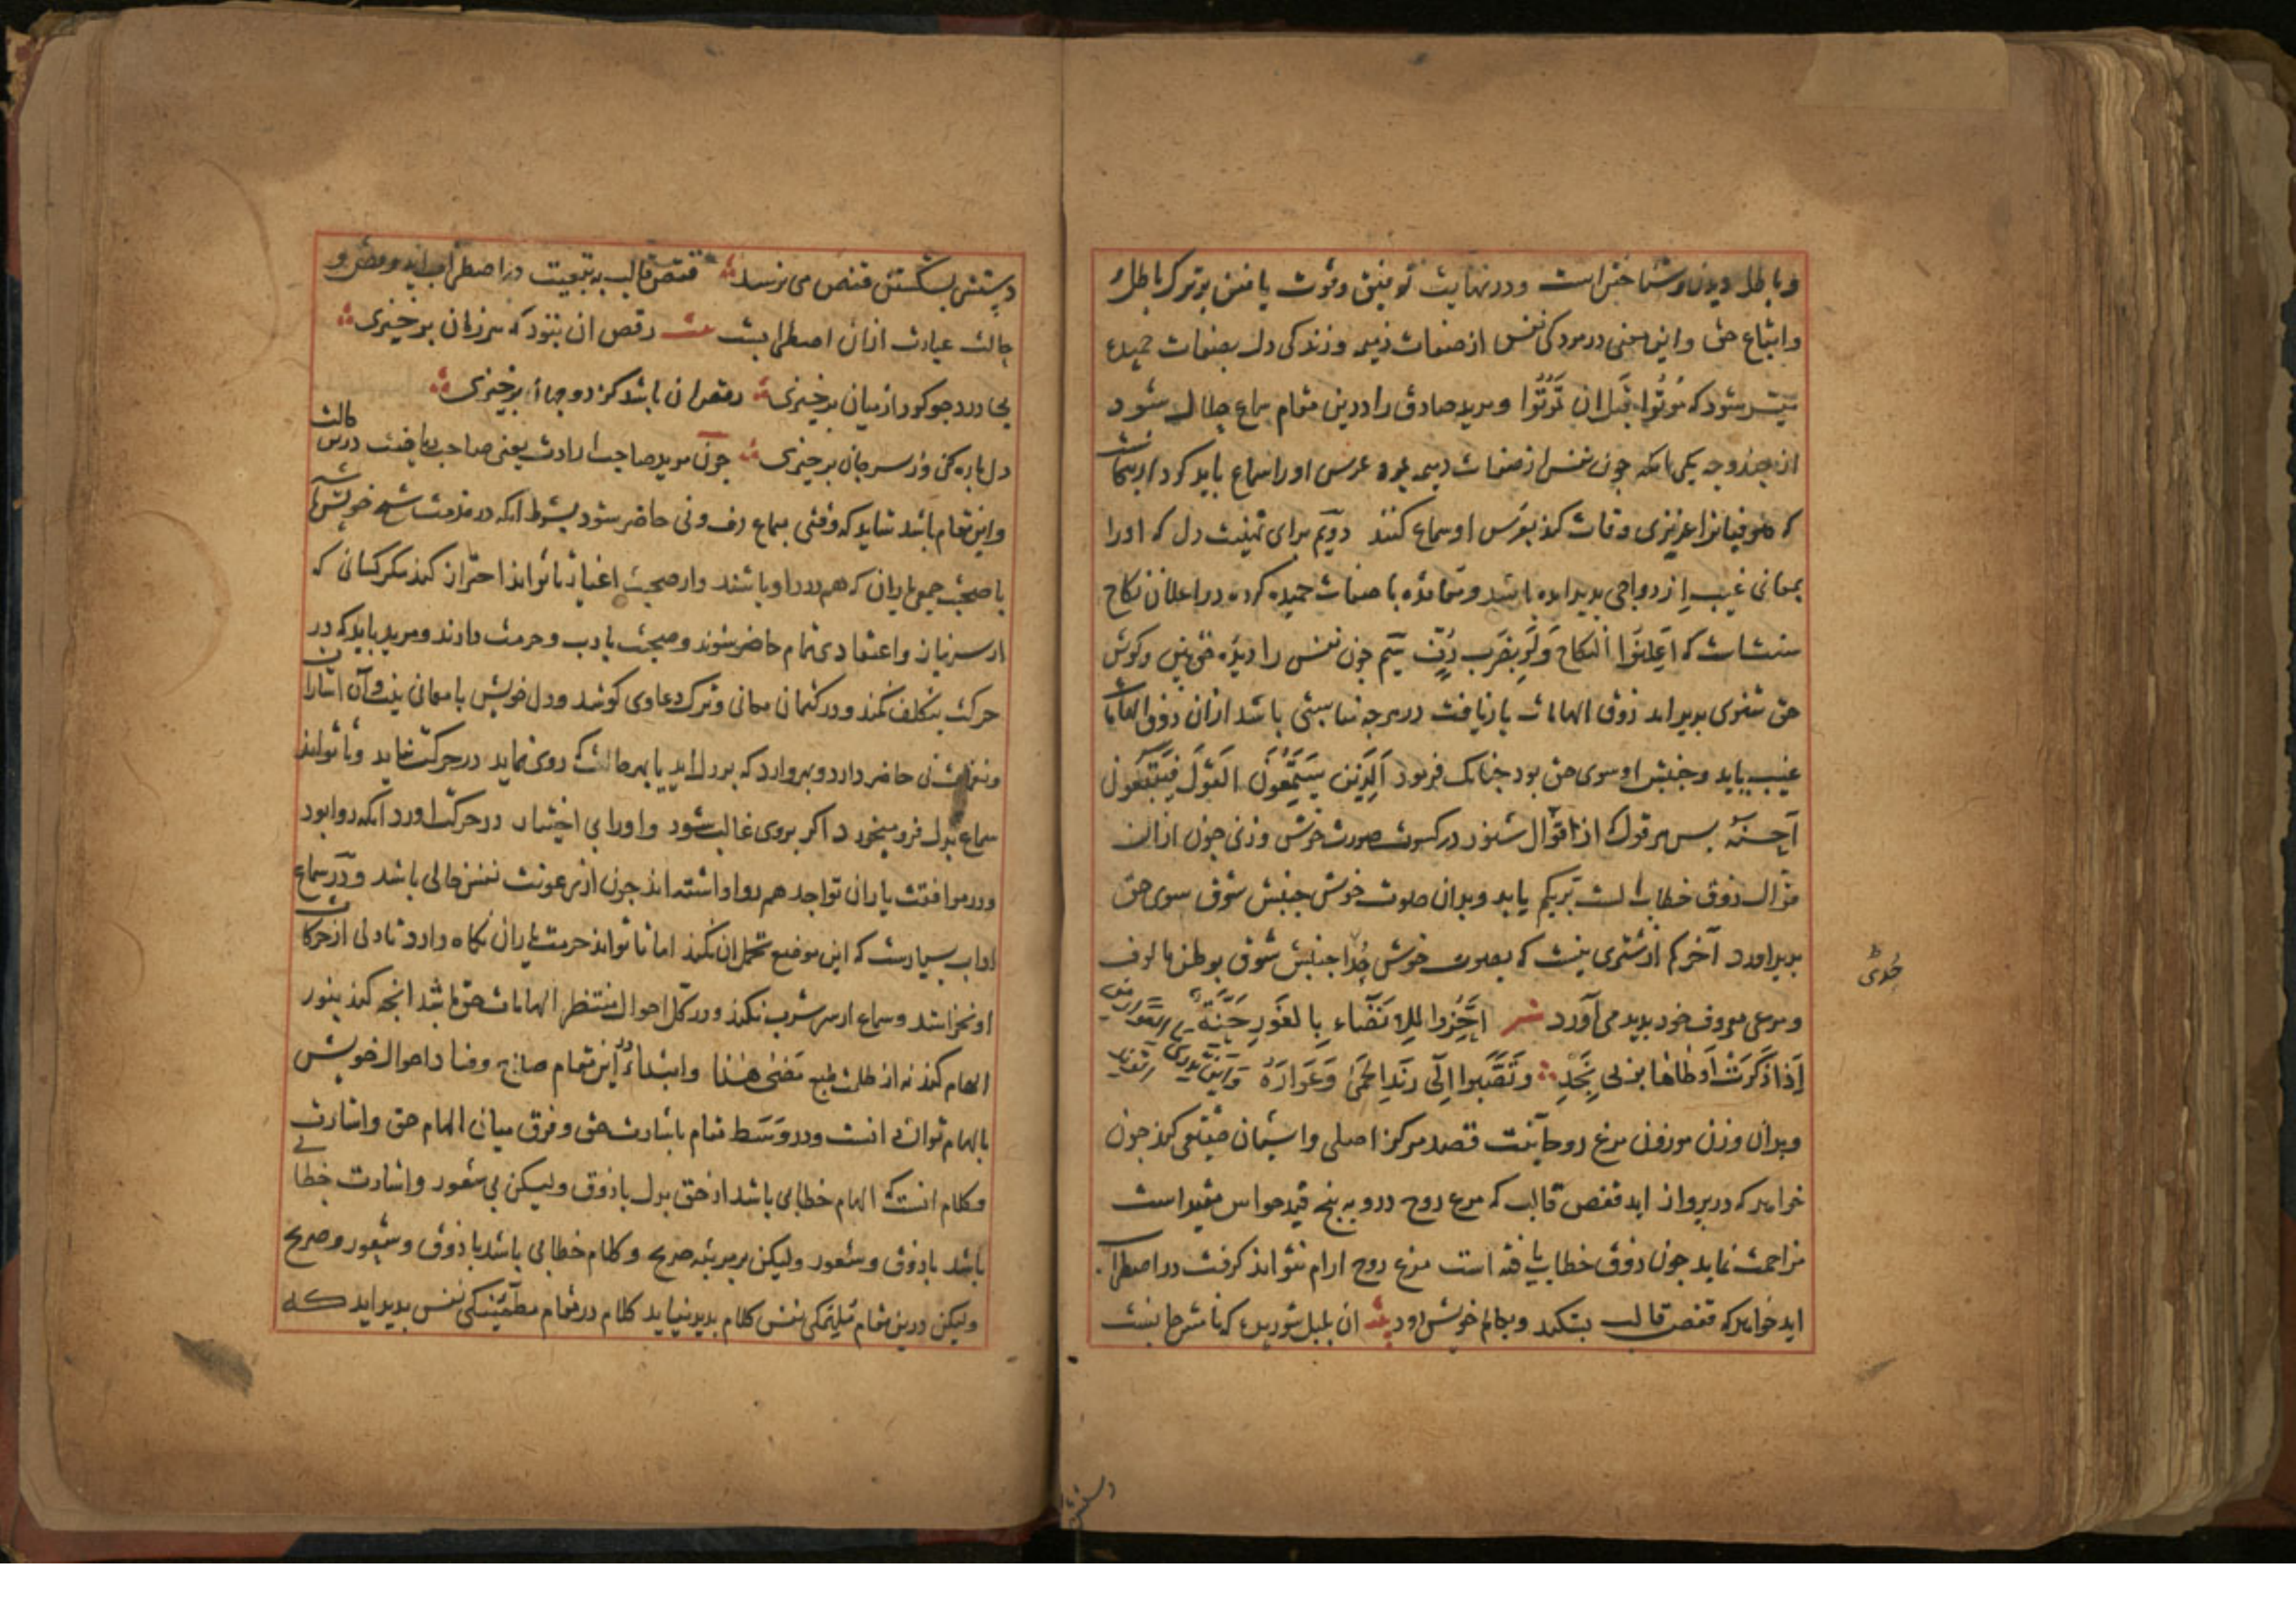 و باطل دیدن و شناختن است و در نهایت توفیق و قوت یافتن بر ترک باطل
و اتباع حق و این معنی در مردکی نفس از صفات ذمیمه و زندکی دل بصفات حمیده
میسر شود که مُوتُوا قَبلَ ان تَمُوتُوا و مرید صادق را درین مقام سماع حلال شود
از چند وجه یکی انکه چون نفس از صفات ذمیمه بمرد عرس او را سماع باید کرد از سنت
که صوفیانرا عزیزی وفات کند بعرس او سماع کنند دویم برای تهنیت دل که او را
بمعانی غیب ازدواجی پدید امده باشد و صفات حمیده کرده در اعلان نکاح
سنت است که اَعلِنُوا النکاح وَلَو بضَرب دُفّ سیّم چون نفس را دیده حق بین و کوش
حق شنوی پدید اید ذوق الهامات بازیافت در هرچه مناسبتی باشد ازان ذوق الهامات
غیب یابد و جنبش او سوی حق بود چنانک فرمود اَلَّذِینَ یَستَمِعُونَ القَولَ فَیَتَّبِعُونَ
اَحسَنَه پس هر قول که از قوّال شنود در کسوت صورت خوش وزنی چون ازان
قوّال ذوق خطاب الست بربکم یابد و بدان صوت خوش جنبش شوق سوی حق
پدید اورد آخر کم از شتری نیست که بصوت خوش حُدا جنبش شوق بوطن مالوف
حُدی
و مرعی معروف خود پدید می آورد شعر
اِذَا ذَکَرَت اَوطانَها بِرُبی نَجدِ
و بدان وزن موزون مرغ روحانیت قصد مرکز اصلی و اشیان حقیقی کند چون
خواهد که در پرواز اید قفص قالب که مرغ روح درو به پنج قید حواس مقید است
مزاحمت نماید چون ذوق خطاب یافته است مرغ روح ارام نتواند کرفت در اضطراب
اید خواهد که قفص قالب بشکند و بعالم خویش رود ان بلبل شوریده که نامش جانست
دستش
دستش بشکستن قفص می نرسد قفص قالب به تبعیت در اضطراب اید و رقص و
حالت عبارت ازان اضطرابست رقص ان نبود که هر زمان برخیزی
بی درد چو کرد از میان برخیزی رقص ان باشد کز دو جهان برخیزی
دل پاره کنی وز سر جان برخیزی چون مرید صاحب ارادت یعنی صاحب ریاضت درین حالت
و این مقام باشد شاید که وقتی بسماع دف و نی حاضر شود بشرط انکه در خدمت شیخ خویش باشد
یا صحبت جمعی یاران که هم درد او باشند و از صحبت اغیار تا تواند احتراز کند مکر کسانی که
از سر نیاز و اعتقادی تمام حاضر شوند و صحبت با ادب و حرمت دارند و مرید باید که در
حرکت بتکلف نکند و در کتمان معانی و ترک دعاوی کوشد و دل خویش با معانی بیت و آن اشارات
سماع بدل فرو میخورد اکر بر وی غالب شود و او را بی اختیار در حرکت اورد انکه روا بود
و در موافقت یاران تواجد هم روا داشته اند چون از رعونت نفس خالی باشد و در سماع
اداب بسیارست که این موضع تحمل ان نکند اما تا تواند حرمت یاران نکاه دارد تا دلی از حرکات
او نخراشد و سماع از سر شرب نکند و در کل احوال منتظر الهامات حق باشد انچه کند بنور
الهام کند نه از ظلمت طبع مَضی هذا و ابتداء این مقام صلاح و فساد احوال خویش
بالهام توان دانست و در وسط مقام باشارت حق و فرق میان الهام حق و اشارت
و کلام انست که الهام خطابی باشد از حق بدل با ذوق ولیکن بی شعور و اشارت خطابی
باشد با ذوق و شعور ولیکن بر مرتبه صریح و کلام خطابی باشد با ذوق و شعور و صریح
ولیکن درین مقام ملهمکی نفس کلام پدید نیاید کلام در مقام مطمئنکی نفس پدید اید که